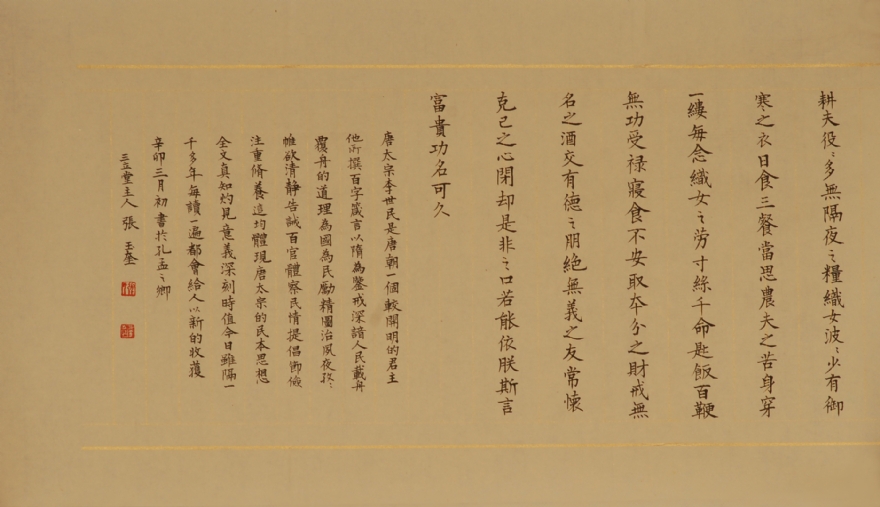 耕夫役〻多無隔夜之糧織女波〻少有御
寒之衣日食三餐當思農夫之苦身穿
一縷每念織女之勞寸絲千命匙飯百鞭
無功受禄寢食不安取本分之財戒無
名之酒交有德之朋絕無義之友常懷
克己之心閉却是非之口若能依朕斯言
富貴功名可久
唐太宗李世民是唐朝一個較開明的君主
他所撰百字箴言以隋為鑒戒深諳人民載舟
覆舟的道理為國為民勵精圖治夙夜孜〻
惟欲清靜告誡百官體察民情提倡節儉
注重脩養這均體現唐太宗的民本思想
全文真知灼見意義深刻時值今日雖隔一
千多年每讀一遍都會給人以新的收獲
辛卯三月初書於孔孟之鄉
三立堂主人張玉奎